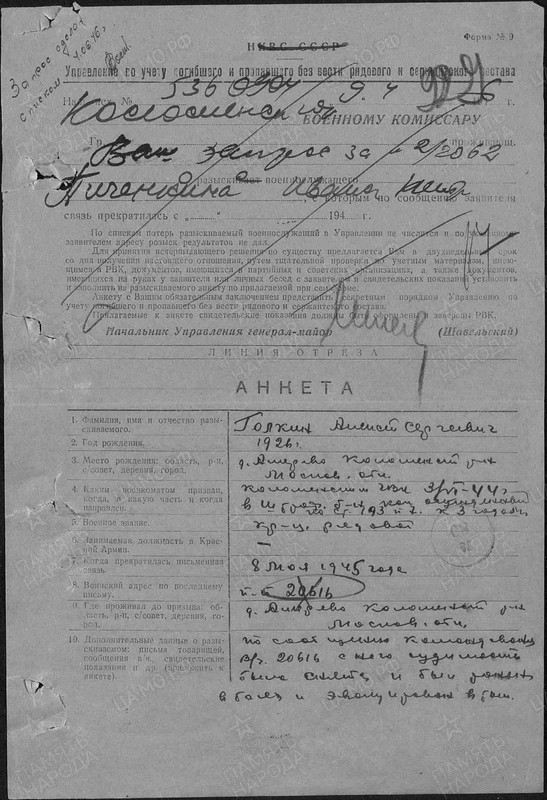 Запрос сделан
списком 4.06.46г.
Форма № 9
НКВС СССР
Управление по учету погибшего и пропавшего без вести рядового и сержантского состава
На г.
Коломенский
ВОЕННОМУ КОМИССАРУ
Гр. проживающ.
Ваш запрос за № 2/2062
разыскивает военнослужащего
Ивана
, с которым по сообщению заявителя
связь прекратилась с „ “ 194 г.
По спискам потерь разыскиваемый военнослужащий в Управлении не числится и по
заявителем адресу розыск результатов не дал.
Для принятия исчерпывающего решения по существу предлагается Вам в двухнедельный срок
со дня получения настоящего отношения, путем тщательной проверки по учетным материалам, имею-
щимся в РВК, документов, имеющихся в партийных и советских организациях, а также документов,
имеющихся на руках у заявителя или личных бесед с заявителем и свидетельских показаний установить
и заполнить на разыскиваемого анкету по прилагаемой при сем форме.
Анкету с Вашим обязательным заключением представить секретным порядком Управлению по
учету погибшего и пропавшего без вести рядового и сержантского состава.
Прилагаемые к анкете свидетельские показания должны быть заверены РВК.
Начальник Управления генерал-майор (Шавельский)
ЛИНИЯ ОТРЕЗА
АНКЕТА
1. Фамилия, имя и отчество разы-
скиваемого. Галкин Алексей Сергеевич
2. Год рождения. 1926г.
3. Место рождения: область, р-н,
с/совет, деревня, город. Коломенский р-н
Москов. обл.
4. Каким военкоматом призван,
когда, в какую часть и когда
направлен. Коломенским РВК
5. Военное звание. кр-ц. рядовой
6. Занимаемая должность в Крас-
ной Армии. —
7. Когда прекратилась письменная
связь. 8 мая 1945 года
8. Воинский адрес по последнему
письму. п. п. 20616
9. Где проживал до призыва: об-
ласть, р-н, с/совет, деревня, го-
род. Коломенский р-н
Москов. обл.
10. Дополнительные данные о разы-
скиваемом: письма товарищей,
сообщения в/ч, свидетельские
показания и др. (приложить к
анкете). по сообщению командования
в/ч. 20616 с него судимость
была снята и был ранен
в боях и эвакуирован
ПАМЯТЬ НАРОДА
ЦАМО.РФ